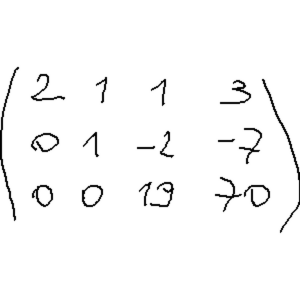 2 1 1 3
0 1 -2 -7
0 0 19 70